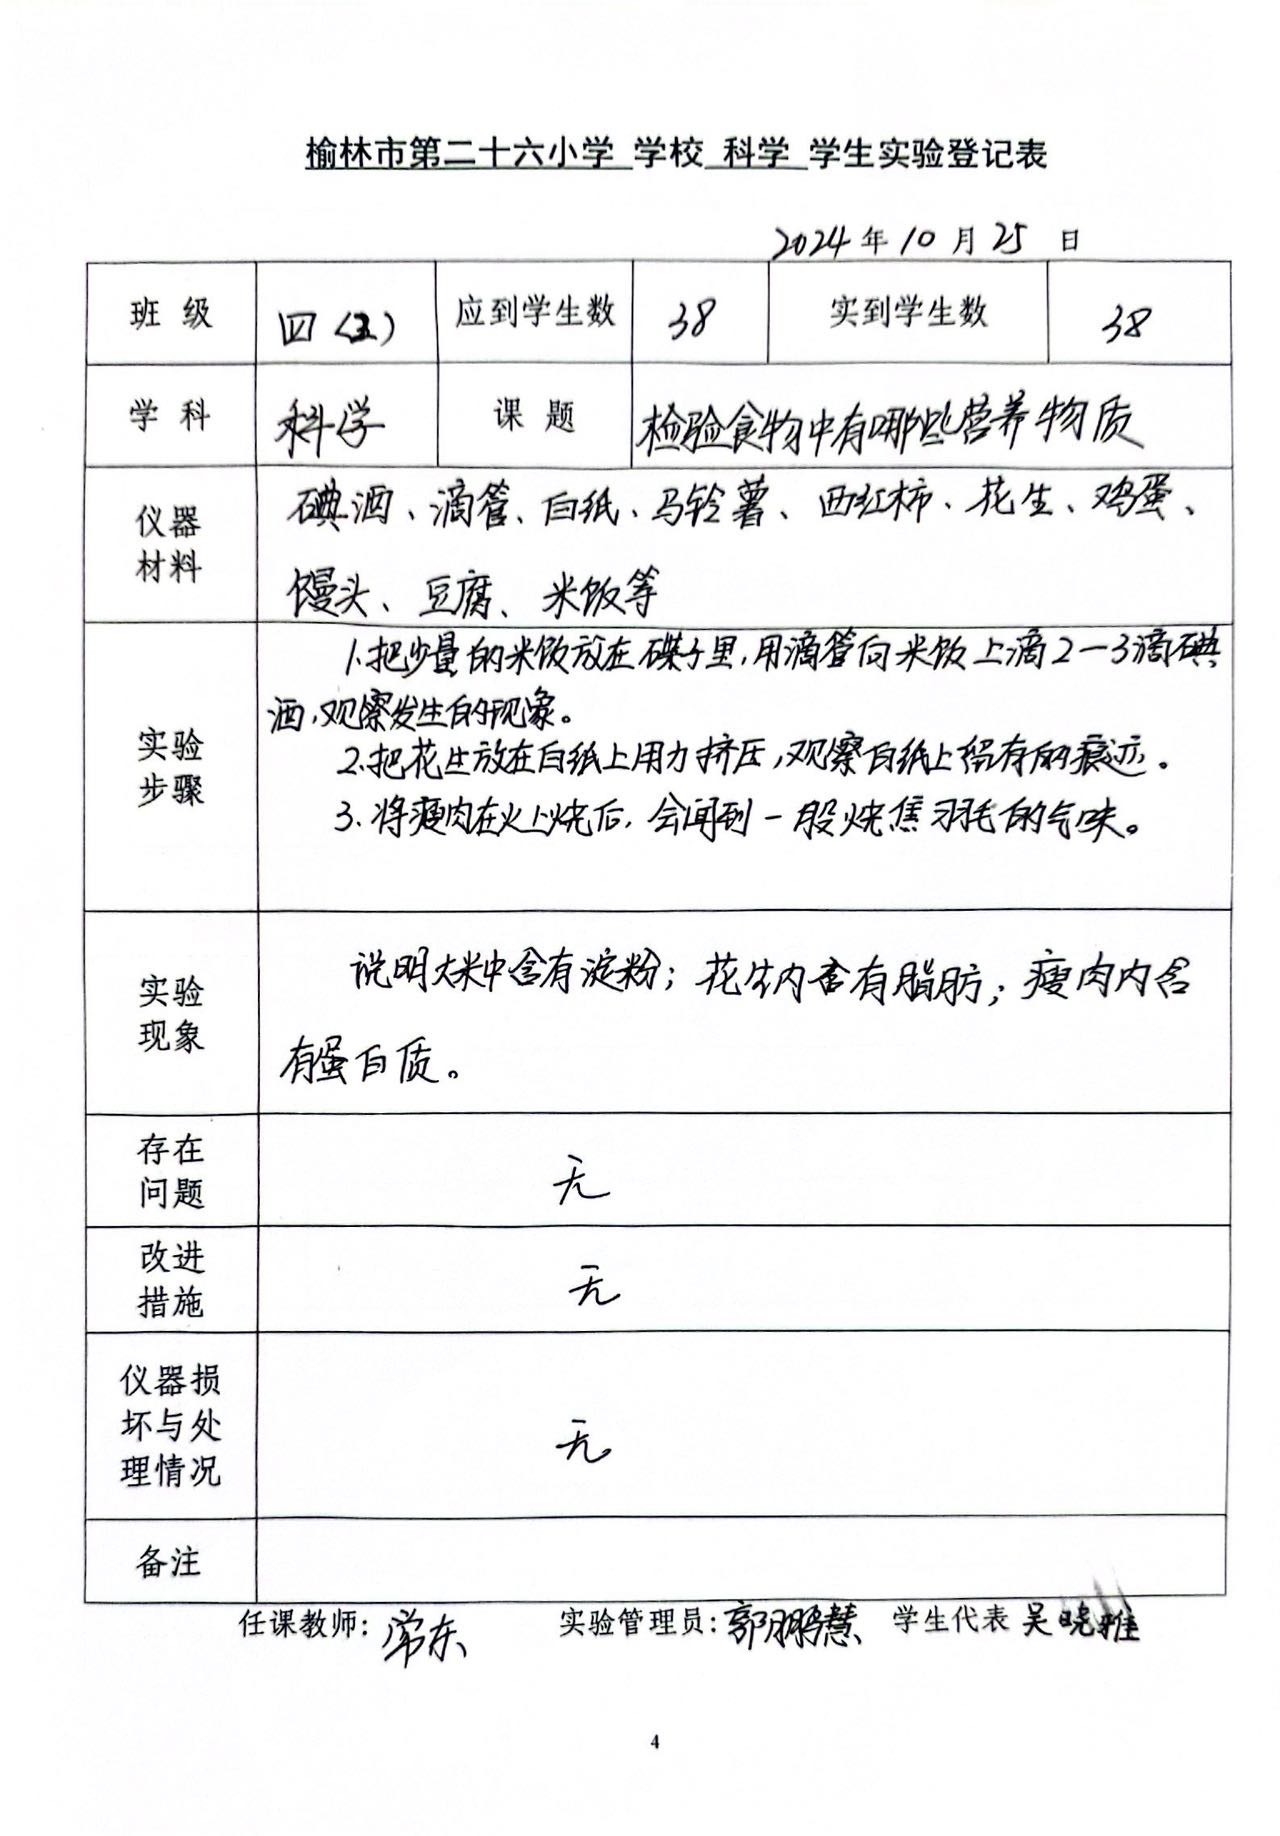 榆林市第二十六小学 学校 科学 学生实验登记表
2024年10月25日
班 级 四 应到学生数 38 实到学生数 38
学 科 科学 课 题 检验食物中有哪些营养物质
仪器
材料
碘酒、滴管、白纸、马铃薯、西红柿、花生、鸡蛋、
馒头、豆腐、米饭等
实验
步骤
1.把少量的米饭放在碟子里,用滴管向米饭上滴2-3滴碘
酒,观察发生的现象。
2.把花生放在白纸上用力挤压,观察白纸上留存的痕迹。
3.将瘦肉在火上烧后,会闻到一股烧焦羽毛的气味。
实验
现象
说明大米中含有淀粉;花生内含有脂肪;瘦肉内含
有蛋白质。
存在
问题
无
改进
措施
无
仪器损
坏与处
理情况
无
备注
任课教师:常东 实验管理员:郭鹏慧 学生代表 吴晓雅
4